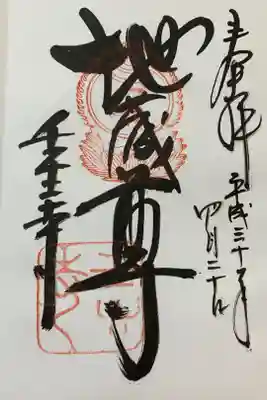 奉拝
平成三十年
四月二十日
地蔵尊
壬生寺